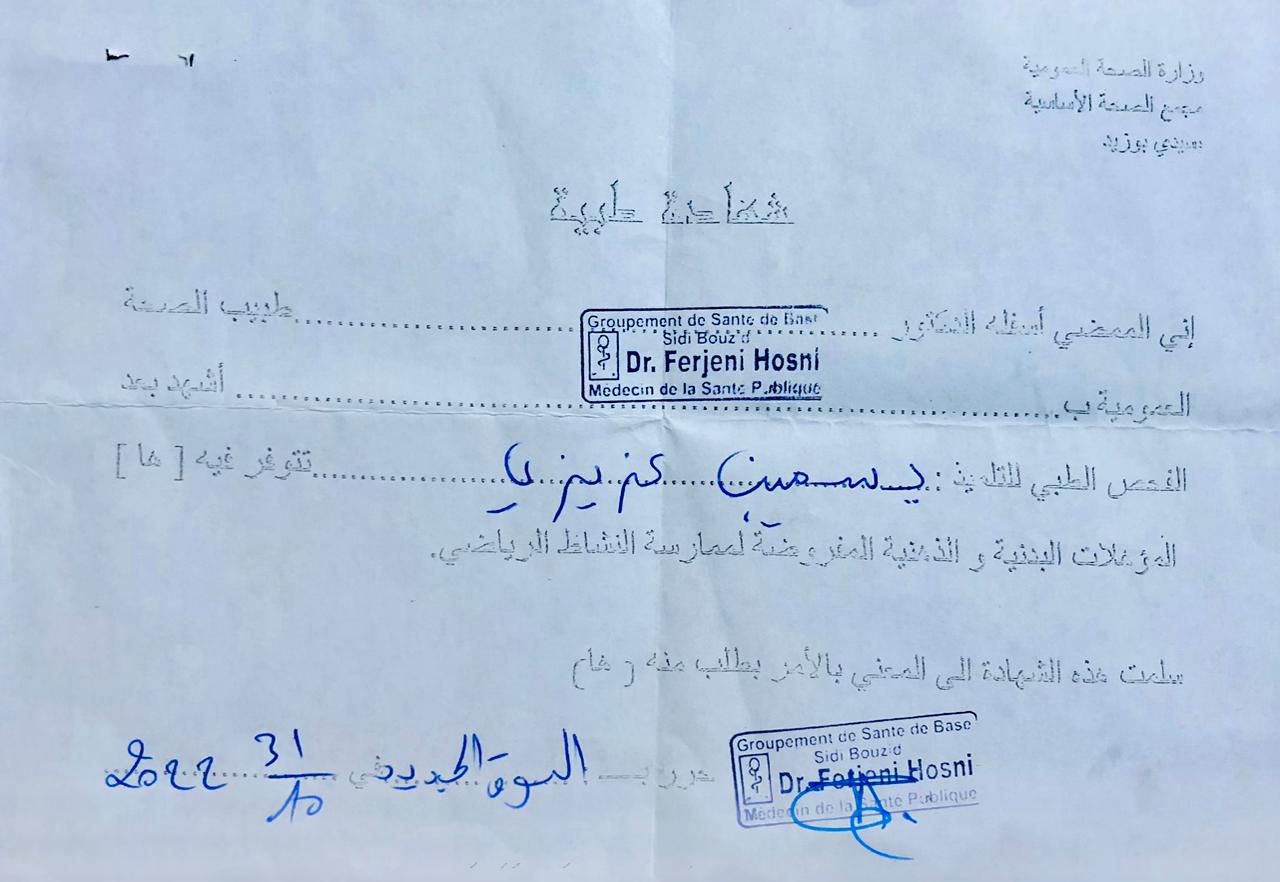 وزارة الصحة العمومية
مجمع الصحة الأساسية
سيدي بوزيد
شهادة طبية
إني الممضي أسفله الدكتور ........ طبيب الصحة
Groupement de Sante de Base
Sidi Bouzid
Dr. Ferjeni Hosni
Médecin de la Santé Publique
العمومية ب........ أشهد بعد
الفحص الطبي للتلميذ : ياسمين عزيزي ........ تتوفر فيه [ ها ]
المؤهلات البدنية و الذهنية المفروضة لممارسة النشاط الرياضي.
سلمت هذه الشهادة الى المعني بالأمر بطلب منه ( ها)
حرر بـ السوق الجديد في 31/10 2022
Groupement de Sante de Base
Sidi Bouzid
Dr. Ferjeni Hosni
Médecin de la Santé Publique